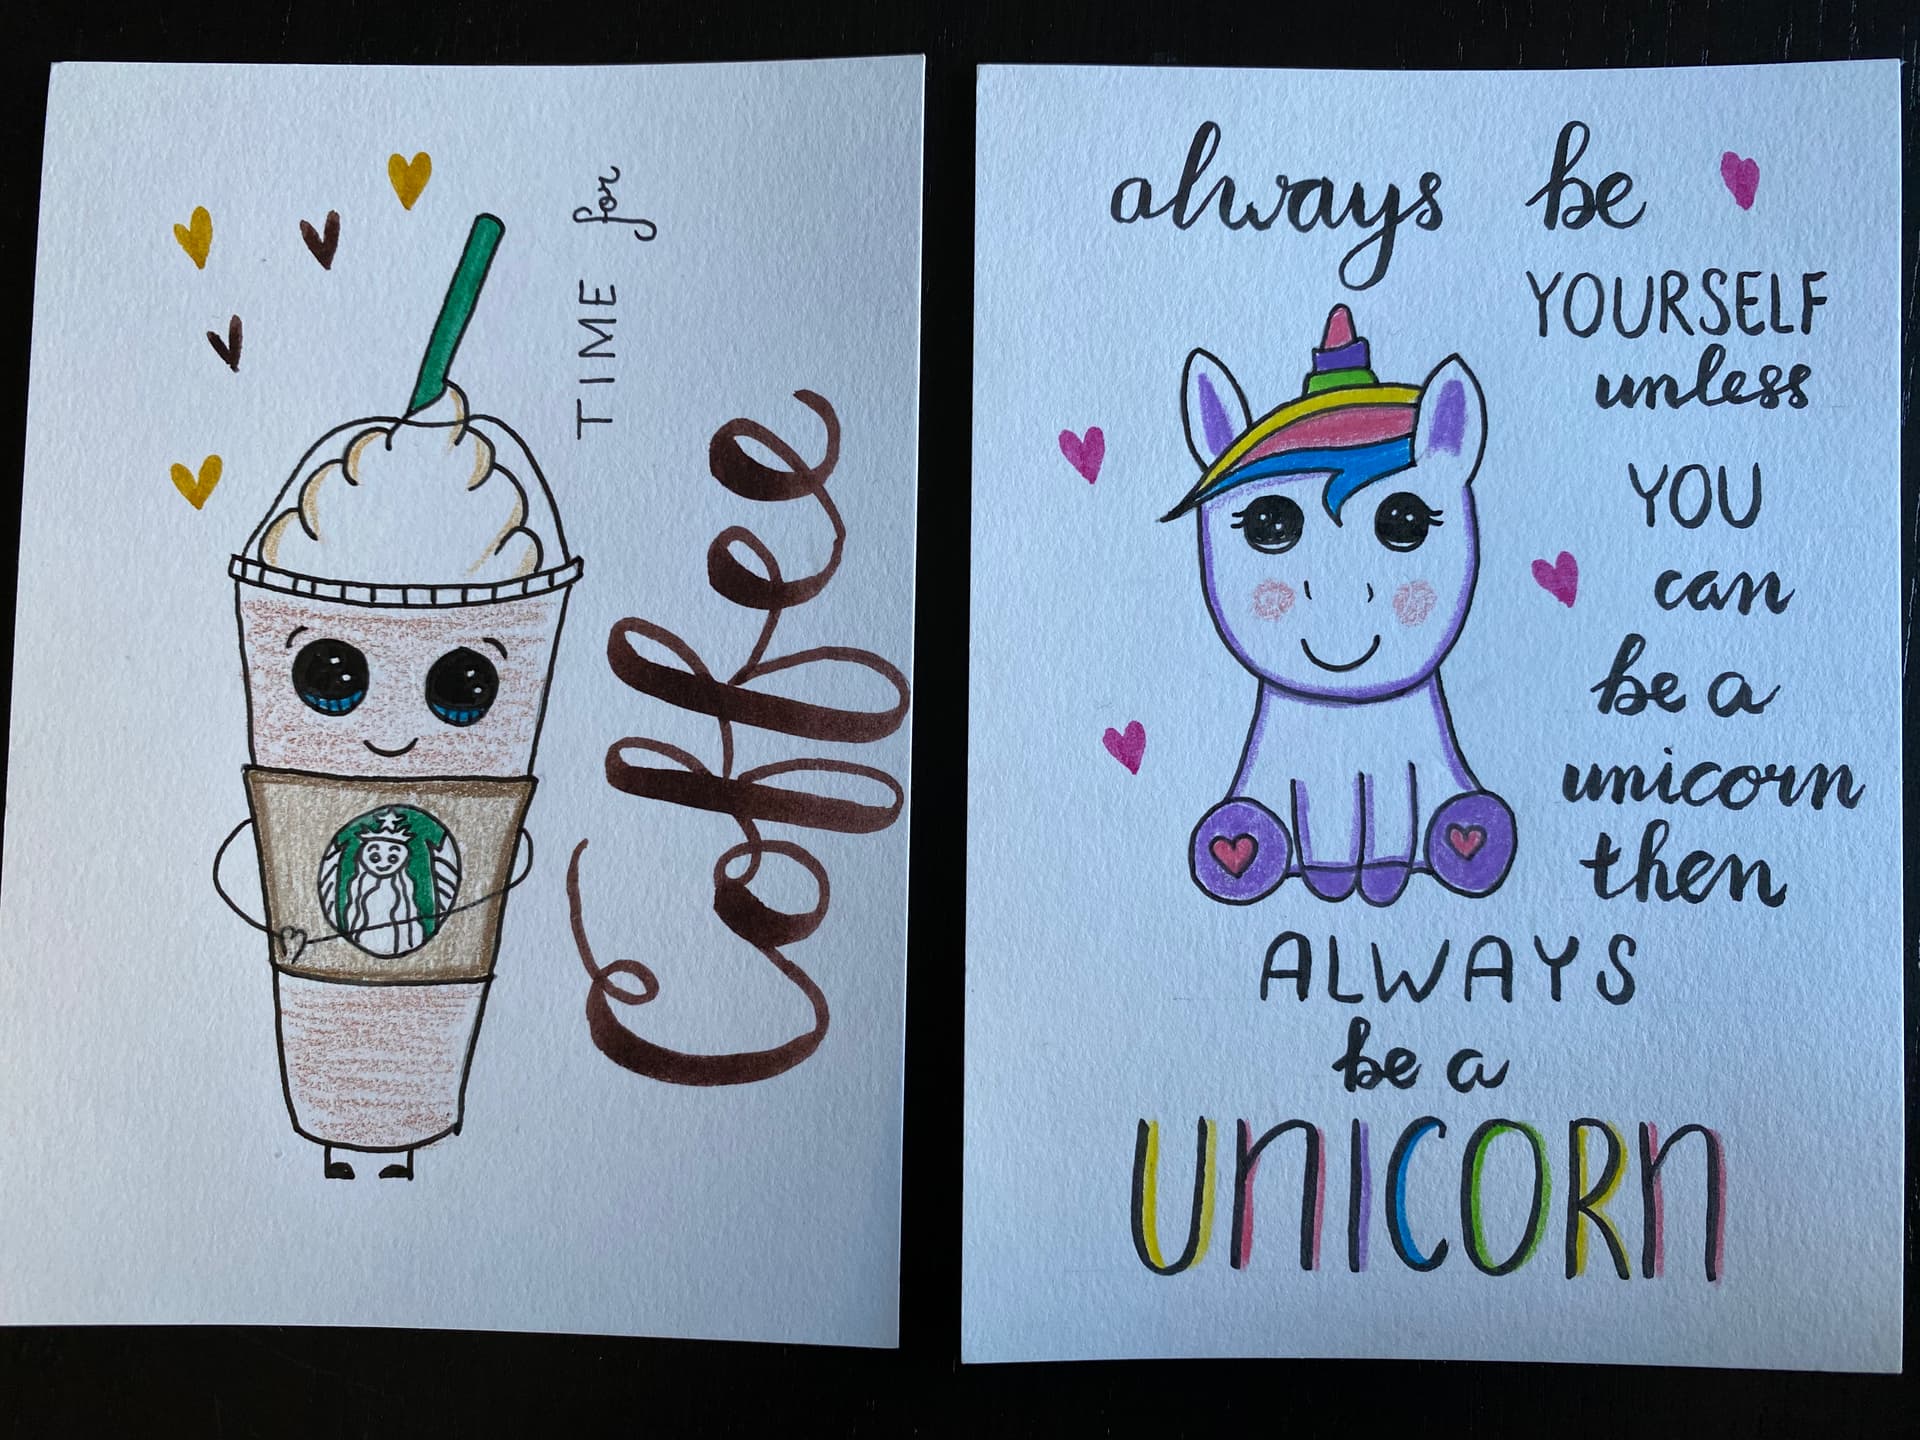 TIME for
Coffee
always be
YOURSELF
unless
YOU
can
be a
unicorn
then
ALWAYS
be a
UNICORN